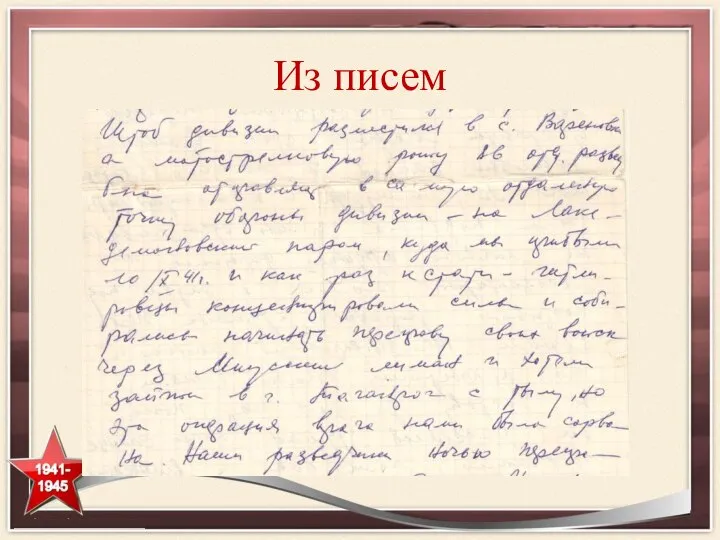 Из писем
Штаб дивизии разместился в с. Вареновка
а мотострелковую роту 26 отд. развед
б-на отправили в самую отдаленную
точку обороны дивизии – на Лаке-
демоновский паром, куда мы прибыли
10/X 41г. и как раз кстати – гитле-
ровцы концентрировали силы и соби-
рались начинать переправу своих войск
через Миусский лиман и хотели
зайти в г. Таганрог с тылу, но
эта операция врага нами была сорва-
на. Наши разведчики ночью перепр-
1941-
1945